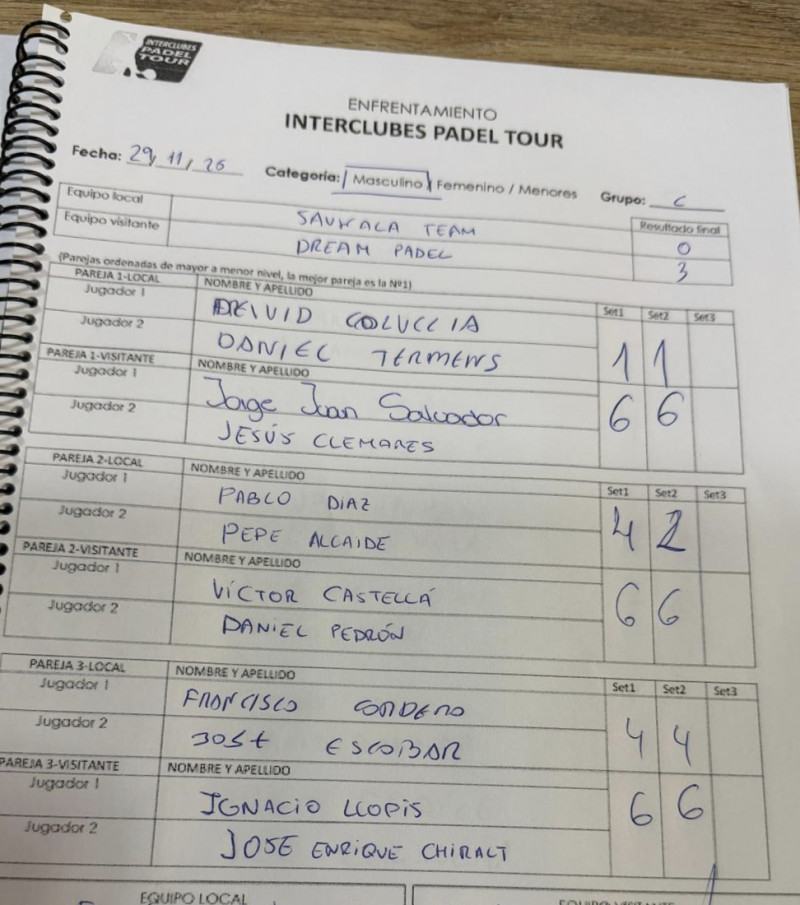 INTERCLUBES
PADEL
TOUR
ENFRENTAMIENTO
INTERCLUBES PADEL TOUR
Fecha: 29/11/25 Categoría: Masculino / Femenino / Menores Grupo: C
Equipo local SAUKALA TEAM Resultado final
0
Equipo visitante DREAM PADEL 3
(Parejas ordenadas de mayor a menor nivel, la mejor pareja es la Nº1)
PAREJA 1-LOCAL NOMBRE Y APELLIDO Set1 Set2 Set3
Jugador 1 COLUCCIA
Jugador 2 DANIEL TERMENS 1 1
PAREJA 1-VISITANTE NOMBRE Y APELLIDO
Jugador 1 Jorge Juan Salvador 6 6
Jugador 2 JESÚS CLEMARES
PAREJA 2-LOCAL NOMBRE Y APELLIDO Set1 Set2 Set3
Jugador 1 PABLO DIAZ
Jugador 2 PEPE ALCAIDE 4 2
PAREJA 2-VISITANTE NOMBRE Y APELLIDO
Jugador 1 VÍCTOR CASTELLÁ 6 6
Jugador 2 DANIEL PEDRÓN
PAREJA 3-LOCAL NOMBRE Y APELLIDO Set1 Set2 Set3
Jugador 1 FRANCISCO CORDERO
Jugador 2 JOSE ESCOBAR 4 4
PAREJA 3-VISITANTE NOMBRE Y APELLIDO
Jugador 1 IGNACIO LLOPIS 6 6
Jugador 2 JOSE ENRIQUE CHIRALT
EQUIPO LOCAL EQUIPO VISITANTE